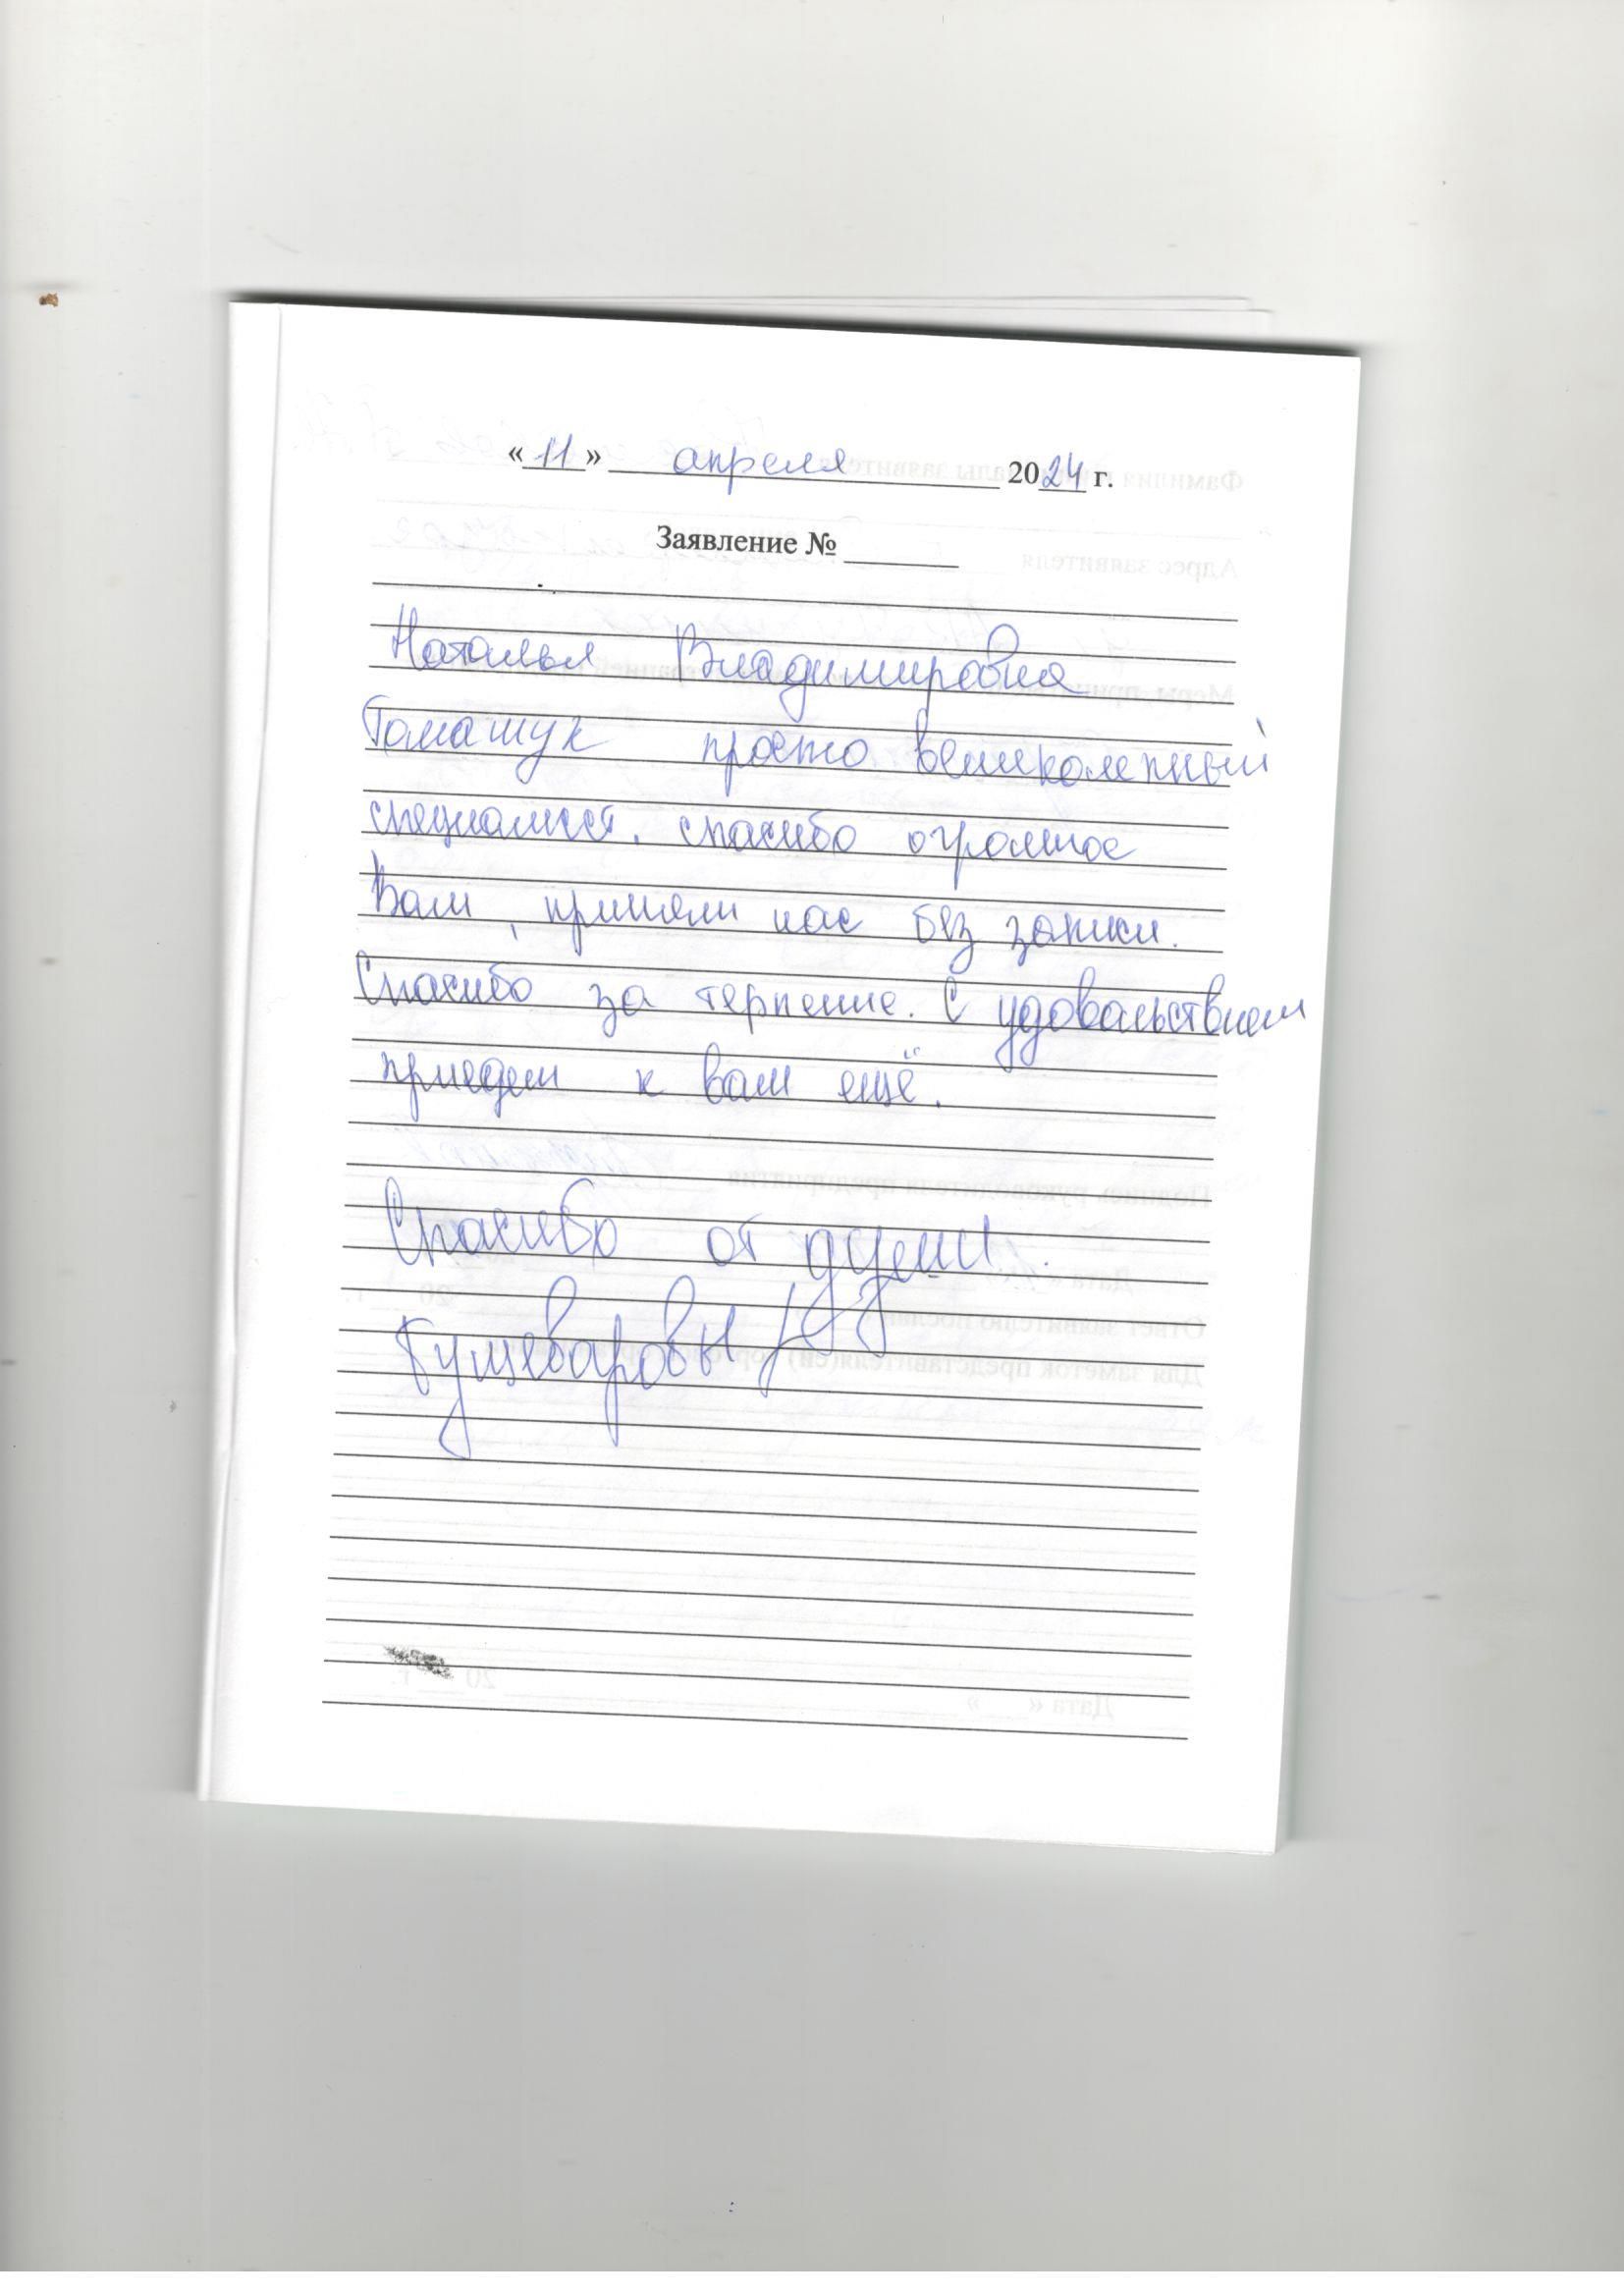 «11» апреля 2024 г.
Заявление № ______
Наталья Владимировна
Томашук просто великолепный
специалист. спасибо огромное
Вам, приняли нас без записи.
Спасибо за терпение. С удовольствием
приедем к вам ещё.
Спасибо от души.